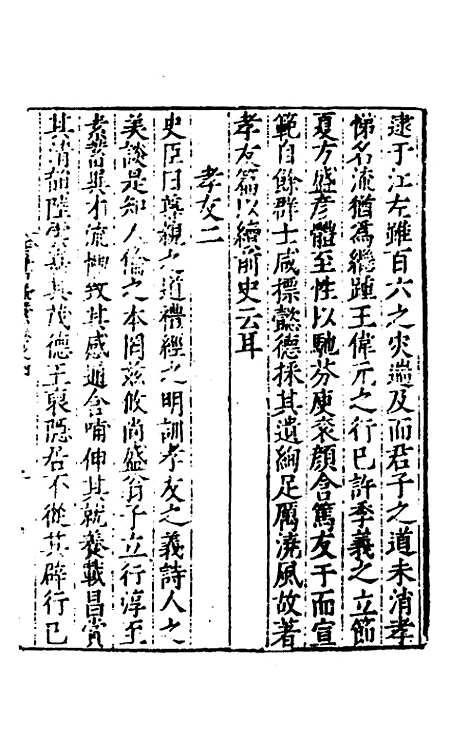 逮于江左雖百六之灾遄及而君子之道未消孝
悌名流猶爲繼踵王偉元之行已許季義之立節
夏方盛彦體至性以馳芬庾衮顔含篤友于而宣
範自餘群士咸標懿德採其遺絢足厲澆風故著
孝友篇以續前史云耳
孝友二
史臣曰尊親之道禮經之明訓孝友之義詩人之
美談是知人倫之本罔兹攸尚盛翁子立行淳至
素蓄異才流慟致其感通含哺伸其就養戴昌賞
其清韶陸雲嘉其茂德王裒隱居不從其辟行已